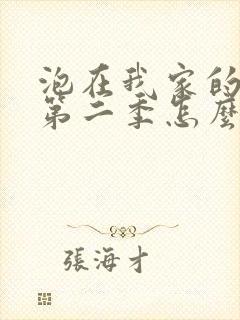 泡在我家的
第二季怎麼
張海才